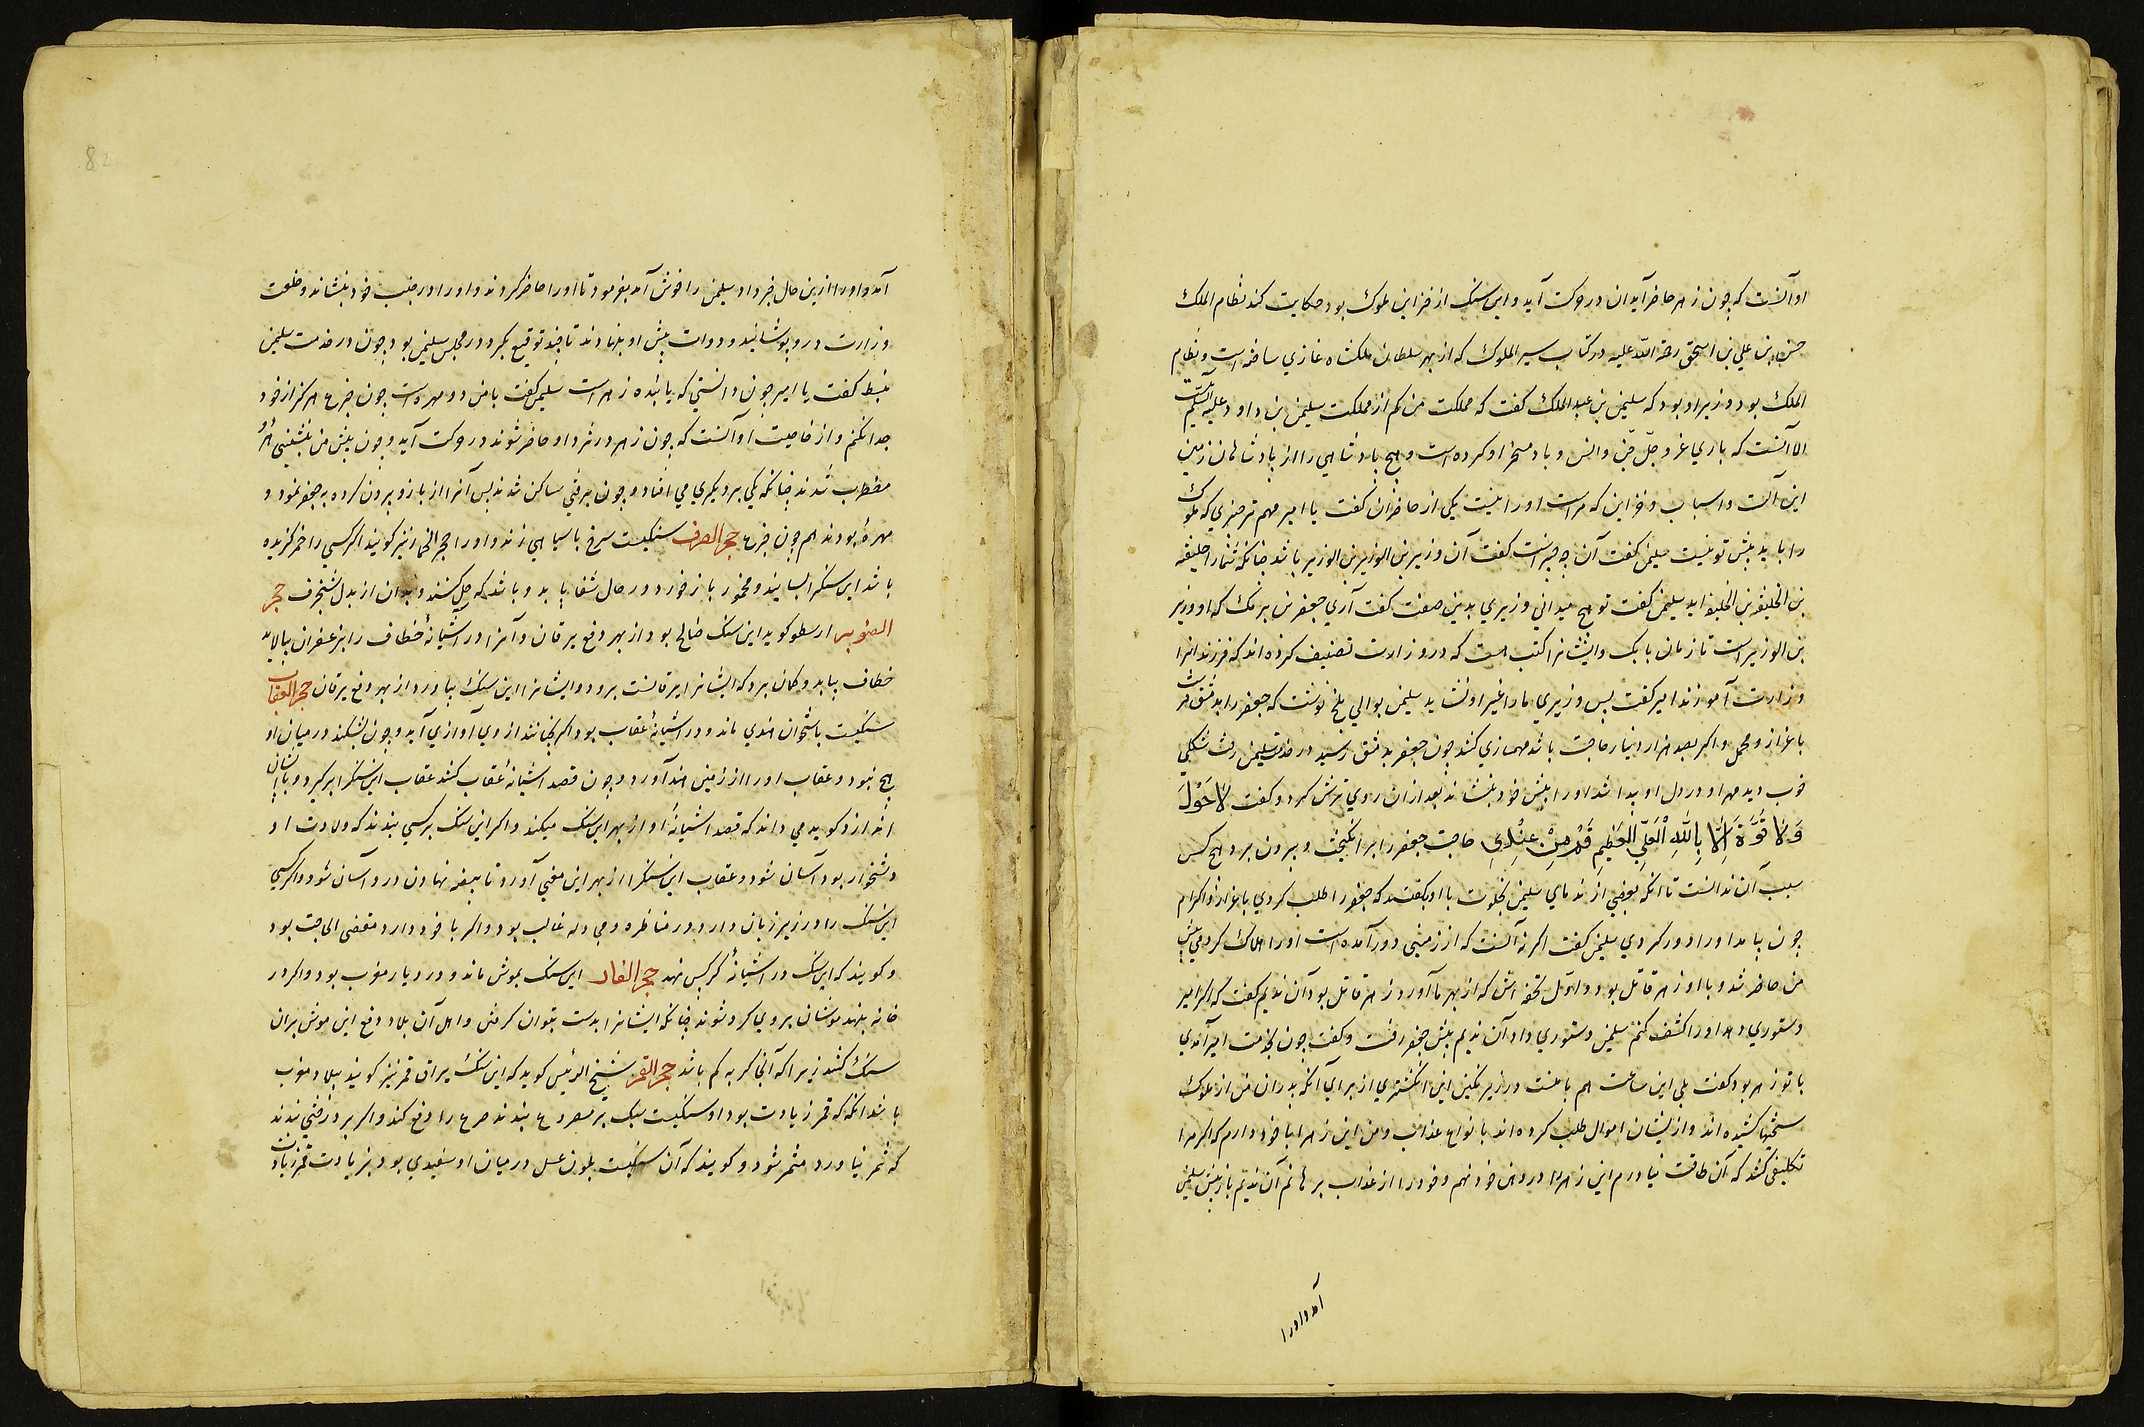 او آنست که چون زهر حاضر آید ان در حرکت آید و این سنک از خزاین ملوک بود حکایت کند نظام الملک
حسن بن علی بن اسحق رحمة الله علیه در کتاب سیر الملوک که از بهر سلطان ملکشاه غازی ساخته است و نظام
الملک بود وزیر او بود که سلیمن بن عبد الملک گفت که مملکت من کم از مملکت سلیمن بن داود علیه السلم نیست
الا آنست که باری عز و جل جن وانس و باد مسخر او کرده است و هیچ پادشاهی را از پادشاهان زمین
این آلت و اسباب و خزاین که مراست اورا نیست یکی از حاضران گفت یا امیر مهم تر چیزی که ملوک
را باید پیش تو نیست سلیمن گفت آن چه چیزست گفت آن وزیر بن الوزیر بن الوزیر باشد چنانکه شما را خلیفه
بن الخلیفه بن الخلیفه اید سلیمن گفت تو هیچ میدانی وزیری بدین صفت گفت آری جعفر بن برمک که او وزیر
بن الوزیر است تا زمان بابک و ایشانرا کتب است که در وزارت تصنیف کرده اند که فرزندانرا
وزارت آموزند امیر گفت پس وزیری ما را غیر او نشاید سلیمن بوالی بلخ نوشت که جعفر را بدمشق فرست
باعزاز و محمل و اکر بصد هزار دینار حاجت باشد مهمسازی کنند چون جعفر بدمشق رسید در خدمت سلیمن رفت شکلی
خوب دید مهر او در دل او پیدا شد اورا پیش خود بنشاند بعد ازان روی ترش کرد و گفت لا حَوْلَ
وَلا قُوَّةَ إِلّا بِاللهِ الْعَلِيِّ الْعَظِيمِ قُمْ مِنْ عِنْدِی حاجب جعفر را برانکیخت و بیرون برد و هیچ کس
سبب آن ندانست تا انکه بعضی از ندمای سلیمن بخلوت با او بگفتند که جعفر را طلب کردی باعزاز و اکرام
چون بیامد اورا دور کردی سلیمن گفت اکر نه آنست که از زمینی دور آمده است اورا هلاک کردمی پیش
من حاضر شد و با او زهر قاتل بود و اول تحفه اش که از بهر ما آورد زهر قاتل بود آن ندیم گفت که اکر امیر
دستوری دهد اورا کشف کنم سلیمن دستوری داد آن ندیم پیش جعفر رفت و گفت چون بخدمت امیر آمدی
با تو زهر بود گفت بلی این ساعت هم با منست در زیر نکین این انکشتری از برای آنکه پدران من از ملوک
سختیها کشیده اند و ازیشان اموال طلب کرده اند بانواع عذاب و من این زهر را با خود دارم که اکر مرا
تکلیفی کنند که آن طاقت نیاورم این زهر را در دهن خود نهم و خود را از عذاب برهانم آن ندیم باز پیش سلیمن
آمد و اورا
آمد و اورا ازین حال خبر داد سلیمن را خوش آمد بفرمود تا اورا حاضر کردند و اورا در جنب خود بنشاند و خلعت
وزارت درو پوشانید و دوات پیش او بنهادند تا چند توقیع بکرد و در مجلس سلیمن بود چون در خدمت سلیمن
منبسط گفت یا امیر چون دانستی که با بنده زهر است سلیمن گفت با من دو مهره است چون جزع هرکز از خود
جدا نکنم و از خاصیت او آنست که چون زهر در نزد او حاضر شوند در حرکت آید و چون پیش من بنشستی هر دو
مضطرب شدند چنانکه یکی بر دیکری می افتاد و چون برفتی ساکن شدند پس آنرا از بازو بیرون کرده بجعفر نمود دو
مهره بودند هم چون جزع حجر الصرف سنکیست سرخ باسیاهی زند و اورا حجر الخمار نیز کویند اکر کسی را خمر کزیده
باشد این سنک را بسایند و مخمور باز خورد در حال شفا یابد و باشد که حل کنند و بدان از بدل شنجرف حجر
الصنوبر ارسطو کوید این سنک صالح بود از بهر دفع یرقان و آنرا در آشیانهٔ خطاف را بزعفران بیالاید
خطاف بیاید و کمان برد که ایشانرا یرقانست برود و ایشانرا این سنک بیاورد از بهر دفع یرقان حجر العقاب
سنکیست باستخوان هندی ماند و در اشیانهٔ عقاب بود اکر بجنبانند ازوی آوازی آید و چون بشکنند در میان او
هیچ نبود و عقاب اورا از زمین هند آورد و چون قصد اشیانهٔ عقاب کنند عقاب این سنک را برکیرد و بایشان
اندازد کوید می داند که قصد اشیانهٔ او از بهر این سنک میکنند و اکر این سنک بر کسی بندند که ولادت او
دشخوار بود آسان شود و عقاب این سنک را از بهر این معنی آورد تا بیضه نهادن درو آسان شود و اکر کسی
این سنک را در زیر زبان دارد در مناظره و مجادله غالب بود و اکر با خود دارد مقضی الحاجت بود
و کویند که این سنک در اشیانهٔ کرکس نهد حجر الفار این سنک بموش ماند و در دیار مغرب بود و اکر در
خانه بنهند موشان بروی کرد شوند چنانکه ایشانرا بدست بتوان کرفتن و اهل آن بلاد دفع این موش بدان
سنک کنند زیرا که آنجا کربه کم باشد حجر القمر شیخ الرئیس کوید که این سنک براق قمر نیز کویند ببلاد مغرب
باشد انکه که قمر زیادت بود او سنکیست سبک بر مصروع بندند صرع را دفع کند و اکر بر درختی بندند
که ثمر نیاورد مثمر شود و کویند که آن سنکیست بلون عسل در میان او سفیدی بود بزیادت قمر زیادت